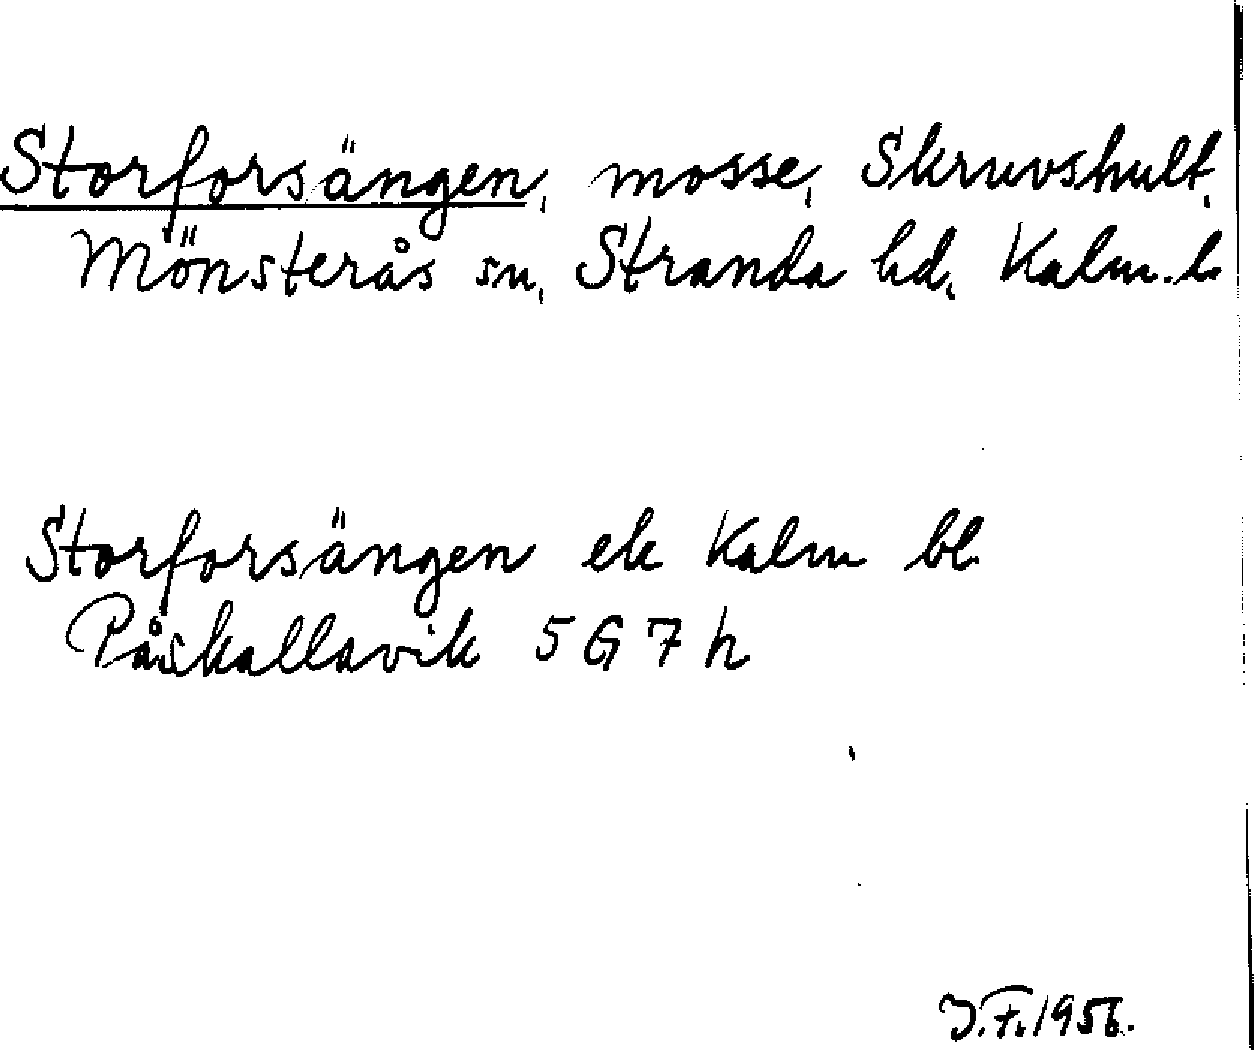 Storforsängen, mosse, Skruvshult,
Mönsterås sn, Stranda hd, Kalm. l.
Storforsängen ek Kalm bl.
Påskallavik 5 G 7 h
J.F. 1956.